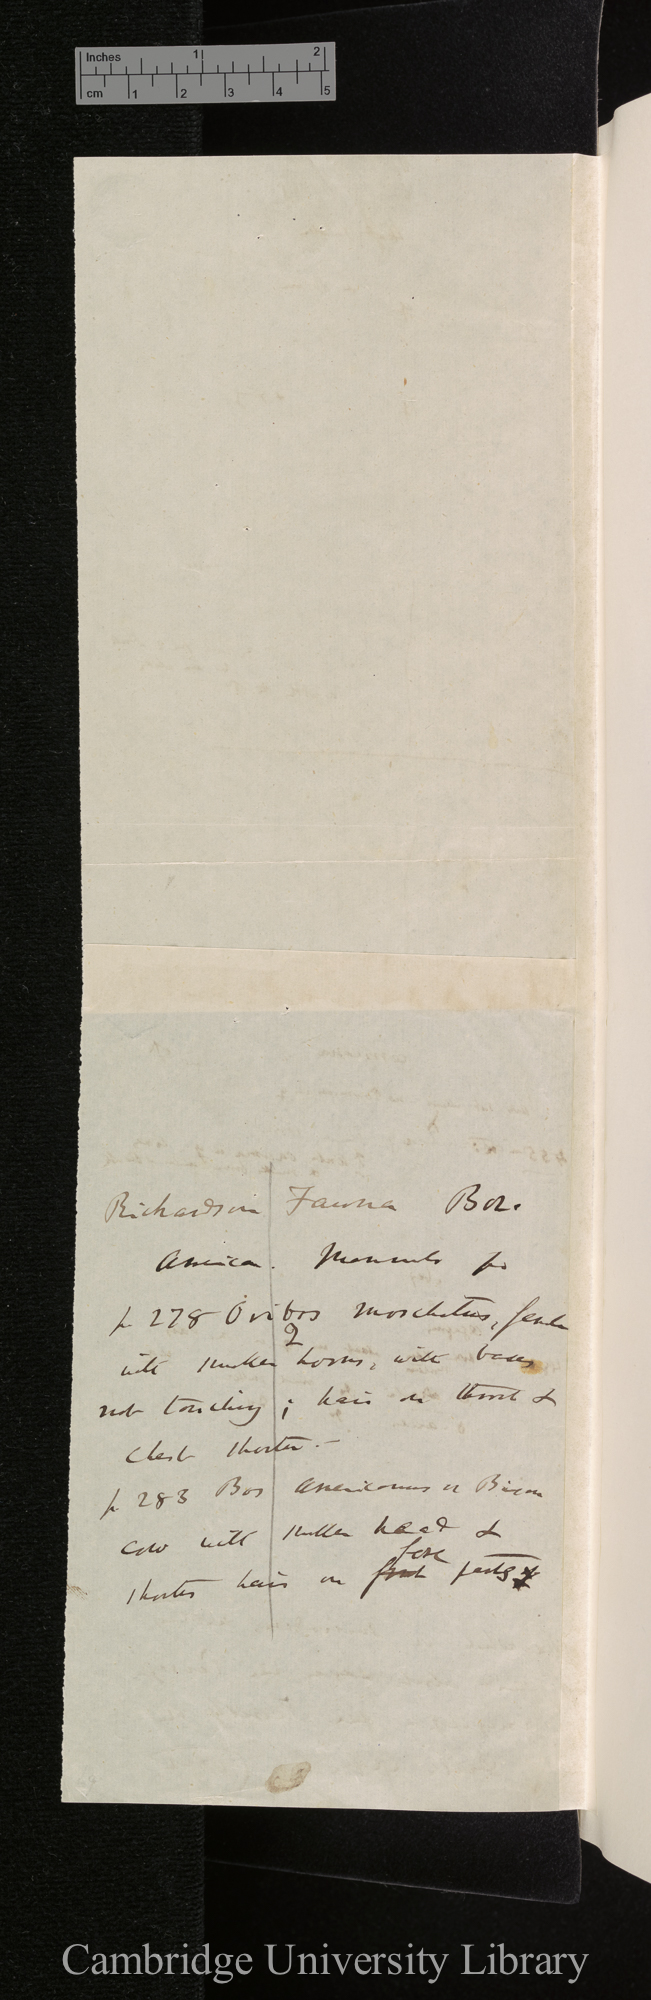 Inches 1 2
cm 1 2 3 4 5
Richardson Fauna Bor.
America. Mammals p
p 278 Ovibos moschatus, female
with smaller horns, with bases
not touching; hair on throat &
chest shorter.—
p 283 Bos Americanus or Bison
cow with smaller head &
fore
shorter hair on front parts
Cambridge University Library